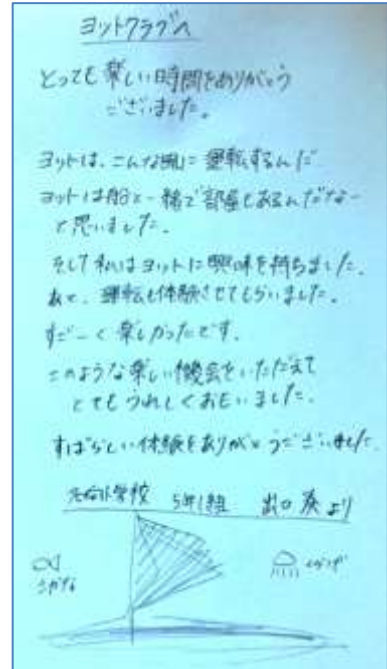 ヨットクラブへ
とっても楽しい時間をありがとう
ございました。
ヨットは、こんな風に運転するんだ
ヨットは船と一緒で部屋もあるんだなー
と思いました。
そして私はヨットに興味を持ちました。
あと、運転も体験させてもらいました。
すごーく楽しかったです。
このような楽しい機会をいただきて
とてもうれしくおもいました。
すばらしい体験をありがとうございました。
小学校 5年1組 より
さかな
くらげ